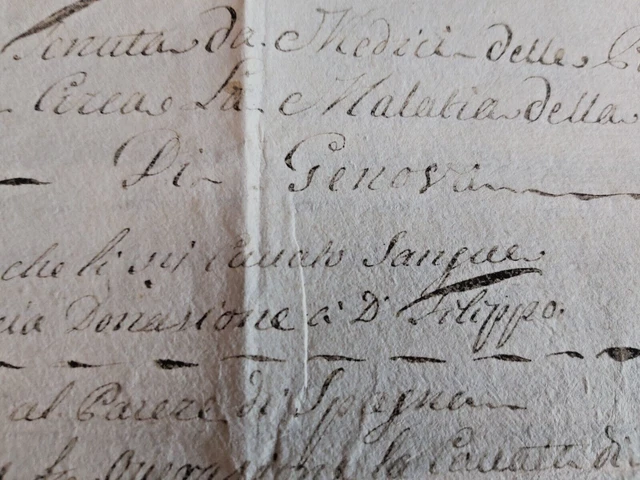 Tenuta da Medici delle
Circa La Malatia della
Di Genova
che li sii Cavato Sangue
Donasione à D. Filippo.
al Parere di Spagna
la